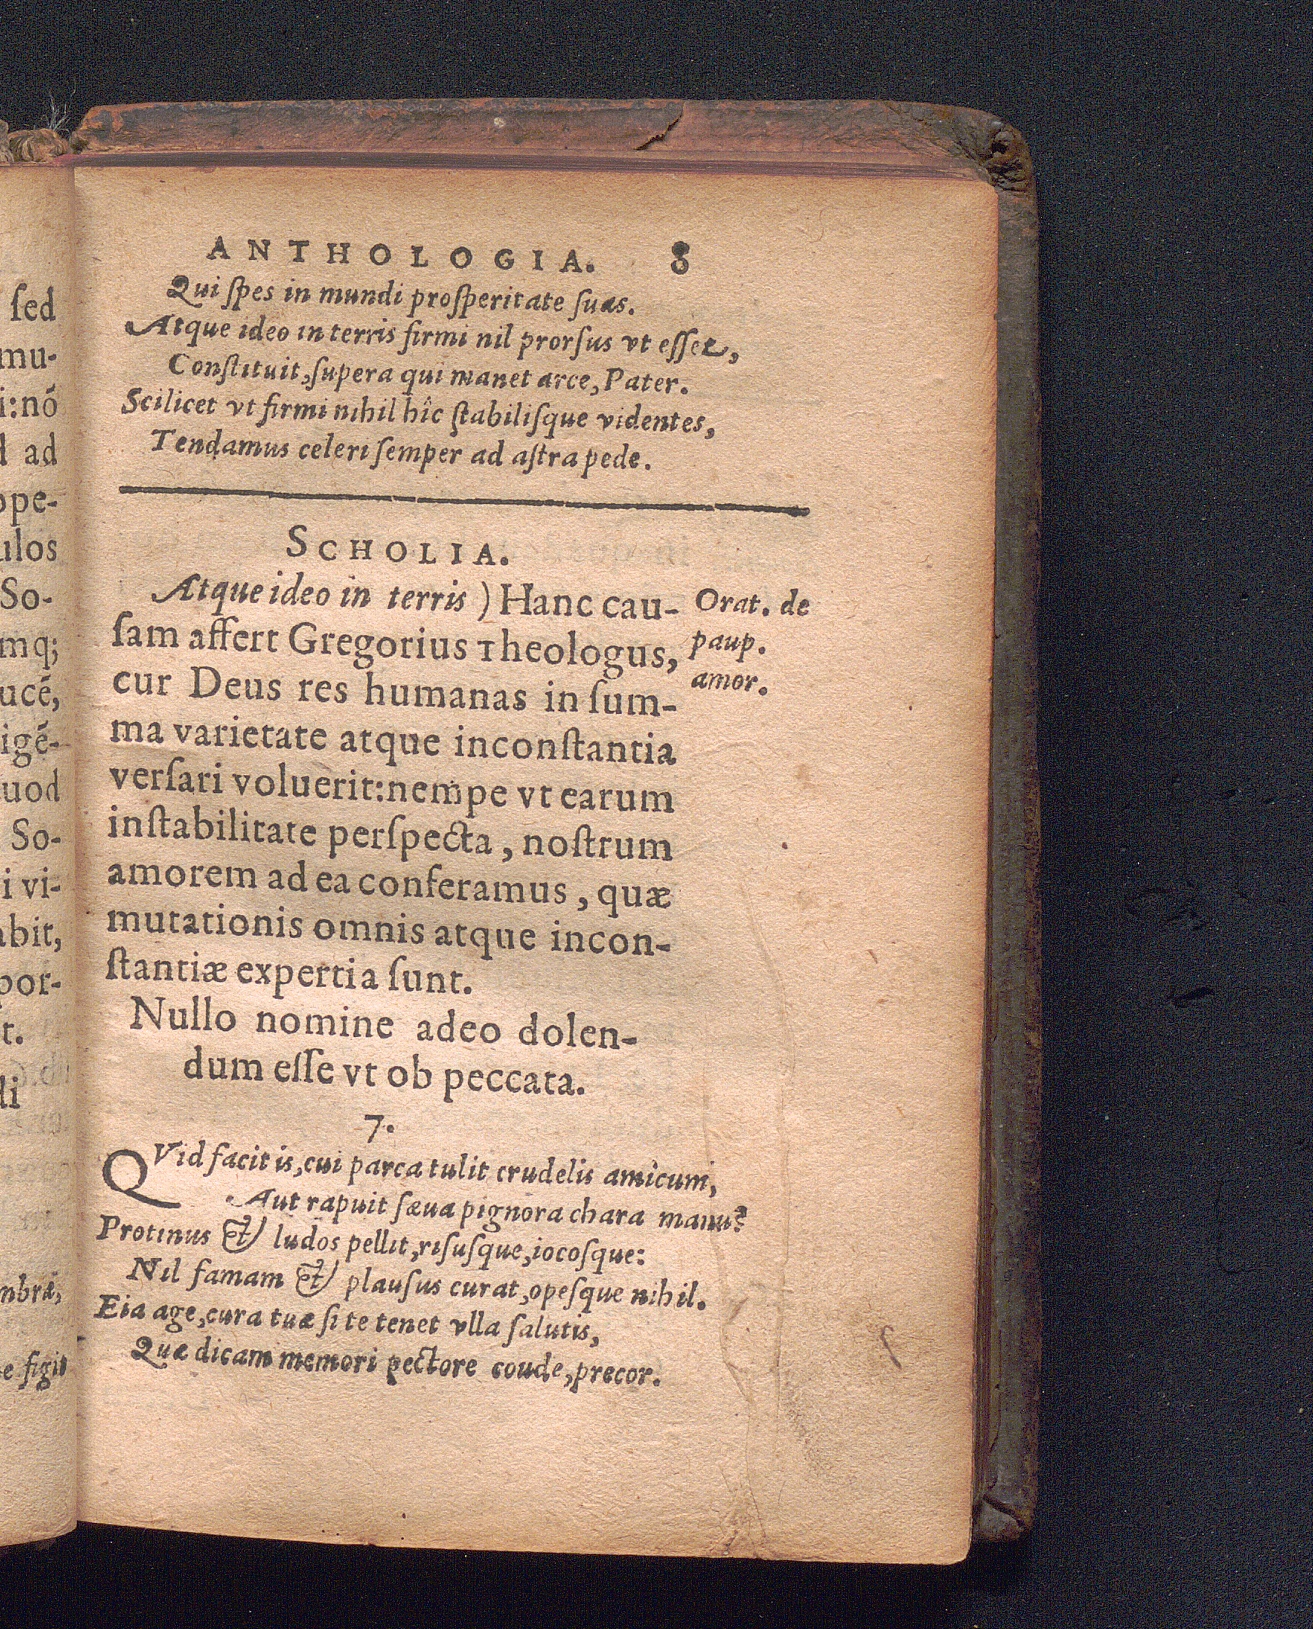 ſed
mu-
i:nõ
d ad
ope-
ulos
So-
mq;
ucē,
igē-
uod
So-
i vi-
abit,
por-
t.
di
mbrā,
e figit
ANTHOLOGIA. 8
Qui ſpes in mundi proſperitate ſuas.
Atque ideo in terris firmi nil prorſus vt eſſet,
Conſtituit, ſupera qui manet arce, Pater.
Scilicet vt firmi nihil hîc ſtabiliſque videntes,
Tendamus celeri ſemper ad aſtra pede.
SCHOLIA.
Atque ideo in terris ) Hanc cau-
ſam affert Gregorius Theologus,
cur Deus res humanas in ſum-
ma varietate atque inconſtantia
verſari voluerit: nempe vt earum
inſtabilitate perſpecta, noſtrum
amorem ad ea conferamus, quæ
mutationis omnis atque incon-
ſtantiæ expertia ſunt.
Orat. de
paup.
amor.
Nullo nomine adeo dolen-
dum eſſe vt ob peccata.
7.
QVid facit is, cui parca tulit crudelis amicum,
Aut rapuit ſæua pignora chara manu?
Protinus & ludos pellit, riſuſque, iocoſque:
Nil famam & plauſus curat, opeſque nihil.
Eia age, cura tuæ ſi te tenet vlla ſalutis,
Quæ dicam memori pectore conde, precor.